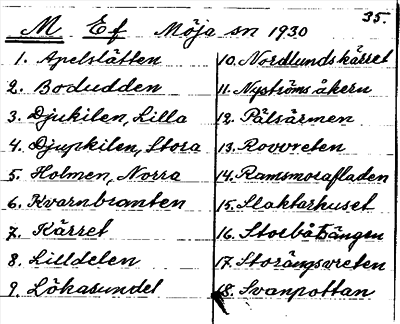 35.
M Ef Möja sn 1930
1. Apelslätten
2. Bodudden
3. Djukilen, Lilla
4. Djupkilen, Stora
5. Holmen, Norra
6. Kvarnbranten
7. Kärret
8. Lilldelen
9. Lökasundet
10. Nordlundskärret
11. Nyströmsåkern
12. Pålsärmen
13. Rovvreten
14. Ramsmorafladen
15. Slaktarhuset
16. Storbåtsängen
17. Storängsvreten
18. Svanpottan